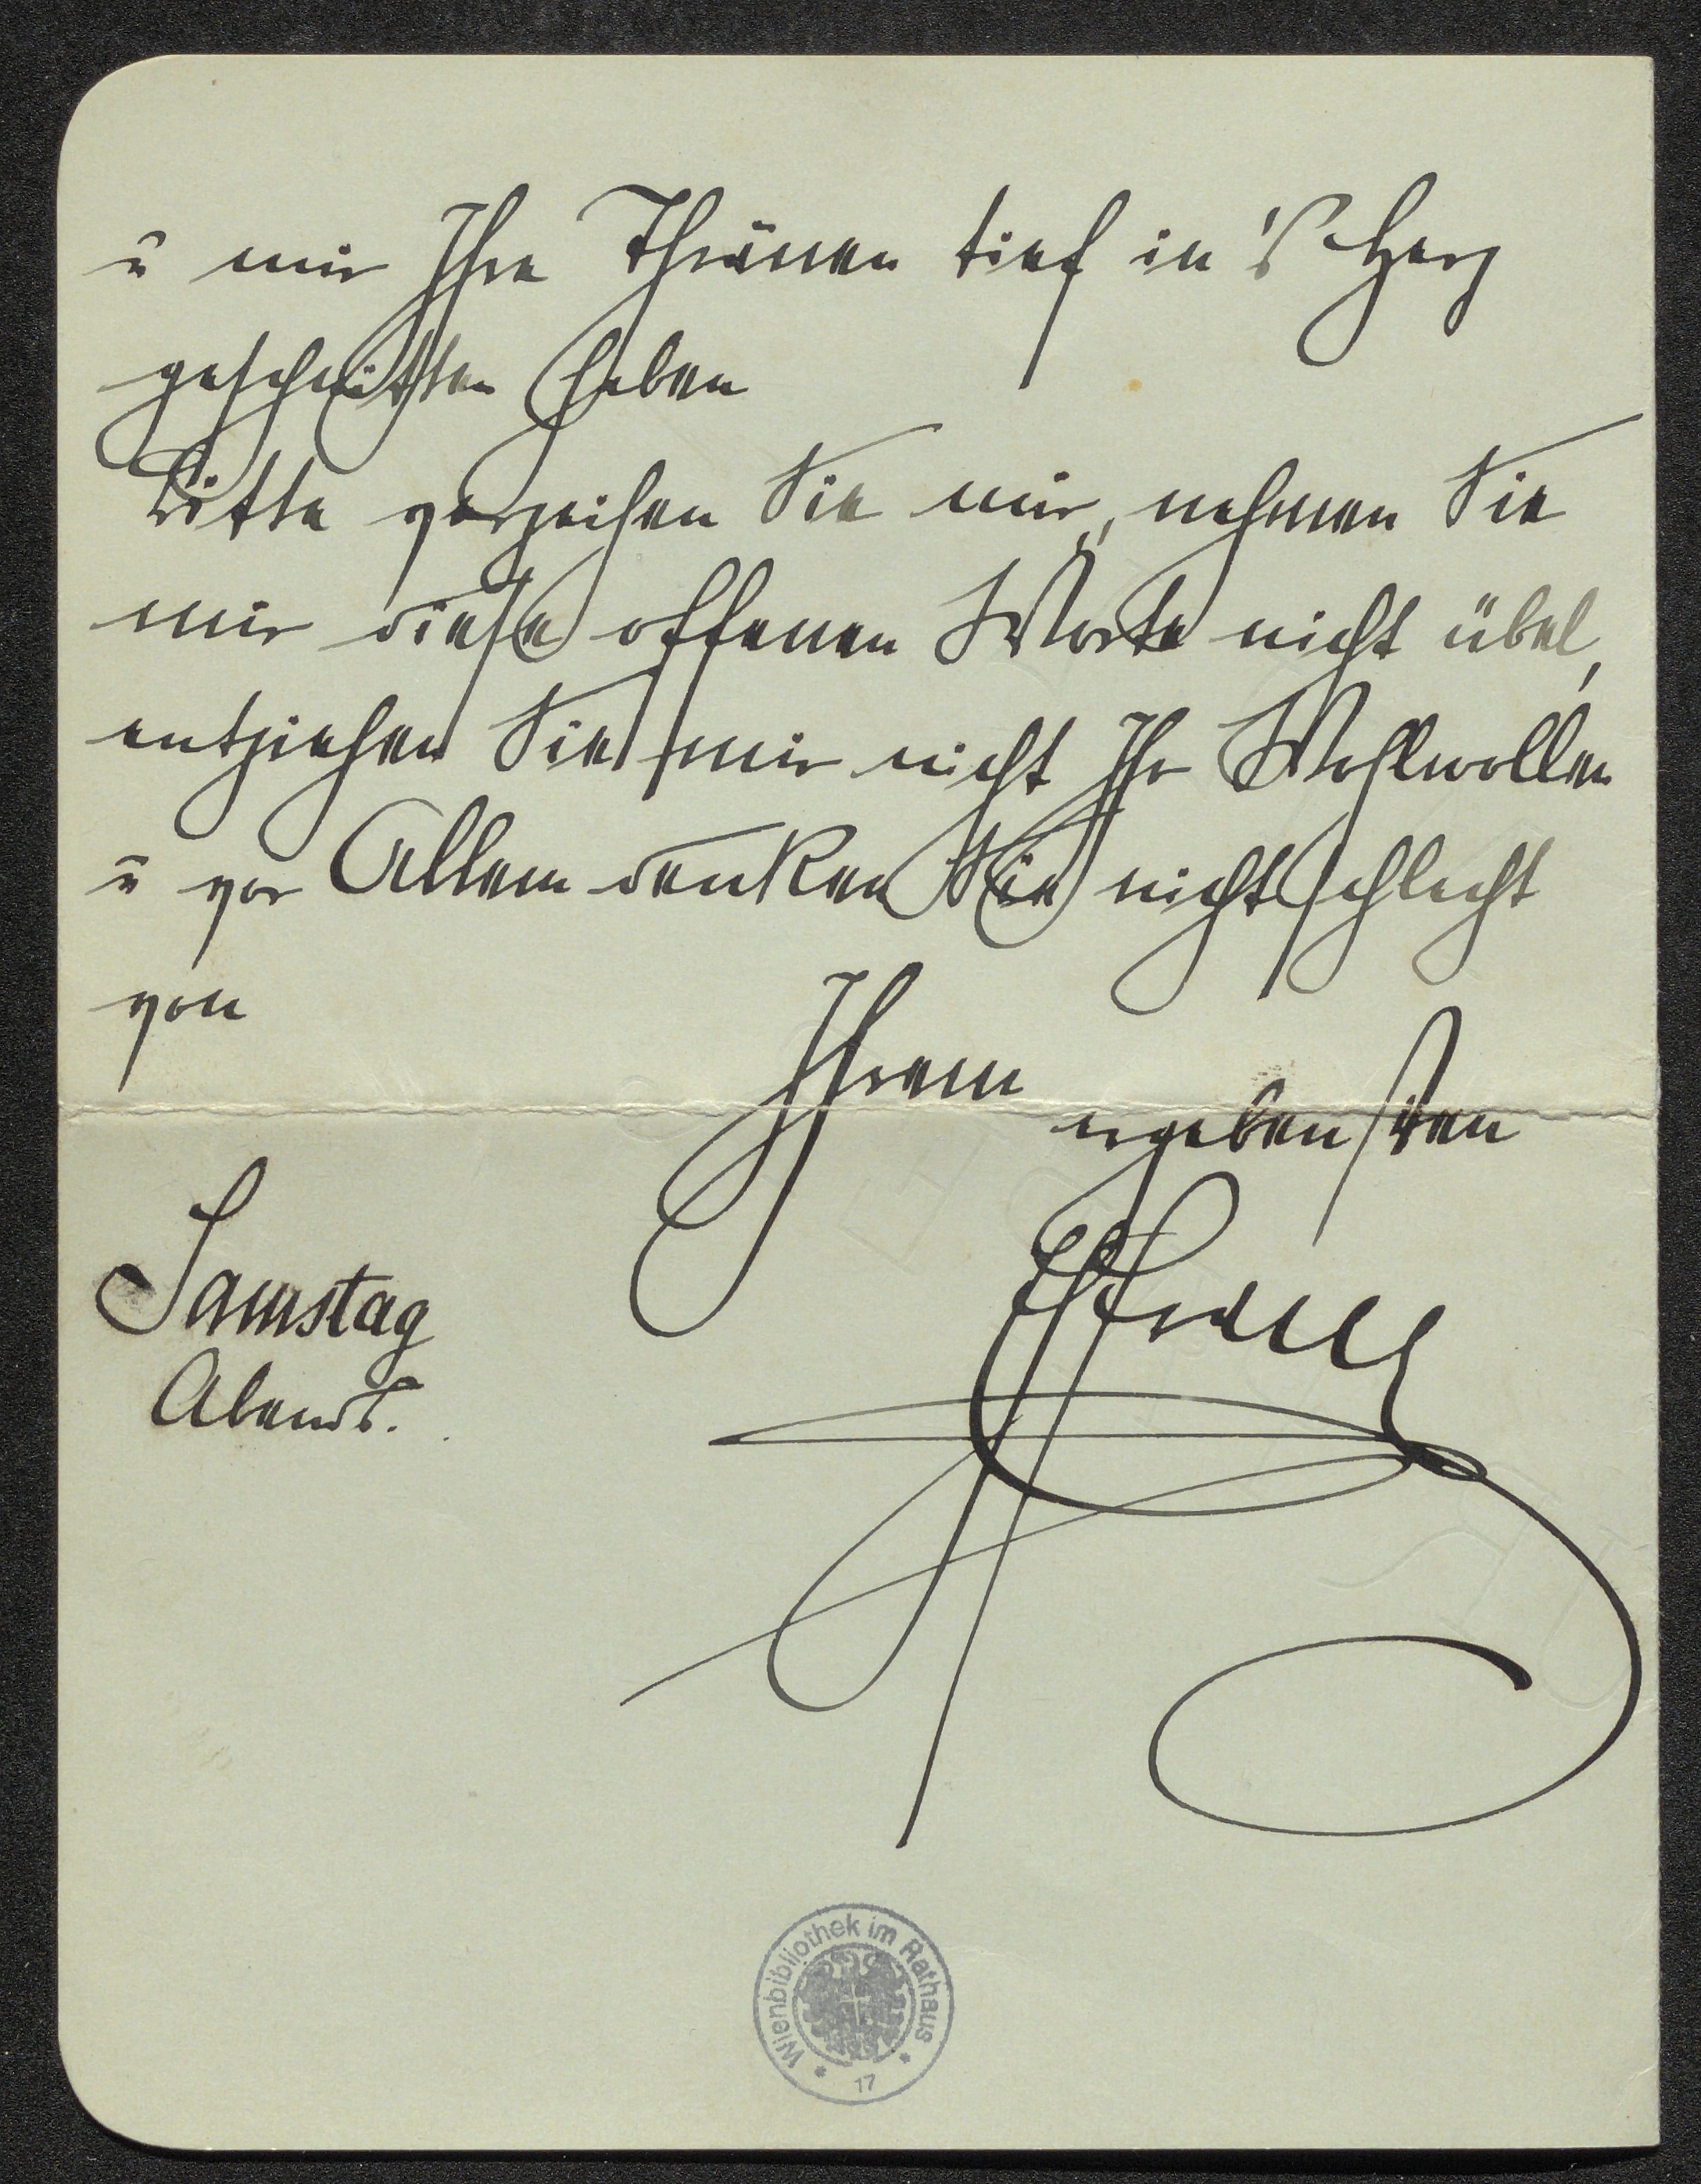 u mir Ihre Thränen tief in's Herz
geschnitten haben
Bitte verzeihen Sie mir, nehmen Sie
mir diese offenen Worte nicht übel,
entziehen Sie mir nicht Ihr Wohlwollen
u vor Allem denken Sie nicht schlecht
von
Ihrem
ergebensten
Samstag
Abends.
Wienbibliothek im Rathaus
17